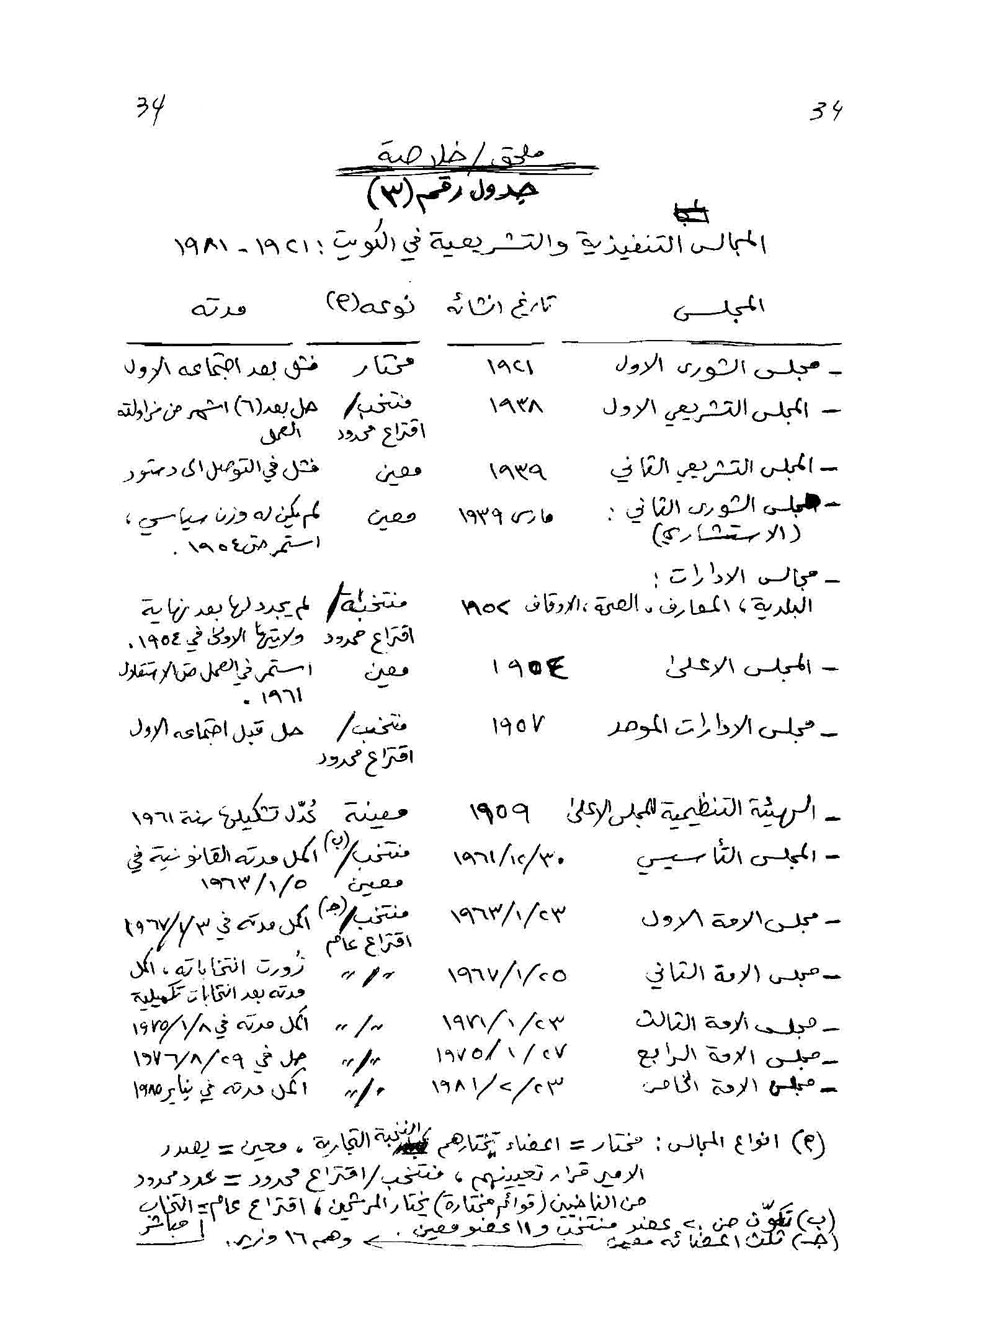 34
34
ملحق / خلاصة
جدول رقم (٣)
المجالس التنفيذية والتشريعية في الكويت : ١٩٢١ - ١٩٨١
المجلس تاريخ انشائه نوعه (م) مدته
- مجلس الشورى الاول ١٩٢١ مختار فشل بعد اجتماعه الاول
- المجلس التشريعي الاول ١٩٣٨ منتخب/ حل بعد (٦) اشهر من مزاولته
اقتراع محدود العمل
- المجلس التشريعي الثاني ١٩٣٩ معين فشل في التوصل الى دستور
- مجلس الشورى الثاني : مارس ١٩٣٩ معين لم يكن له وزن سياسي ،
(الاستشاري) استمر حتى ١٩٥٤ .
- مجالس الادارات :
البلدية ، المعارف ، الصحة ، الاوقاف ١٩٥٢ منتخبة/ لم يجدد لها بعد نهاية
اقتراع محدود ولايتها الاولى في ١٩٥٤ .
- المجلس الاعلى ١٩٥٤ معين استمر في العمل حتى الاستقلال
١٩٦١ .
- مجلس الادارات الموحد ١٩٥٧ منتخب/ حل قبل اجتماعه الاول
اقتراع محدود
- الهيئة التنظيمية للمجلس الاعلى ١٩٥٩ معينة عُدّل تشكيلها سنة ١٩٦١
- المجلس التأسيسي ١٩٦١/١٢/٣٠ منتخب/(ب) اكمل مدته القانونية في
معين ١٩٦٣/١/٥
- مجلس الامة الاول ١٩٦٣/١/٢٣ منتخب/(جـ) اكمل مدته في ١٩٦٧/١/٣
اقتراع عام
- مجلس الامة الثاني ١٩٦٧/١/٢٥ " / " زُورت انتخاباته ، اكمل
مدته بعد انتخابات تكميلية
- مجلس الامة الثالث ١٩٧١/١/٢٣ " / " اكمل مدته في ١٩٧٥/١/٨
- مجلس الامة الرابع ١٩٧٥/١/٢٧ " / " حل في ١٩٧٦/٨/٢٩
- مجلس الامة الخامس ١٩٨١/٢/٢٣ " / " اكمل مدته في يناير ١٩٨٥
(م) انواع المجالس : مختار = اعضاء تختارهم النخبة التجارية ، معين = يصدر
الامير قرار تعيينهم ، منتخب/اقتراع محدود = عدد محدود
من الناخبين (قوائم مختارة) يختار المرشحين ، اقتراع عام = انتخاب
مباشر
(ب) تكوّن من ٢٠ عضو منتخب و ١١ عضو معين .
(جـ) ثلث اعضائه معين وهم ١٦ وزير .